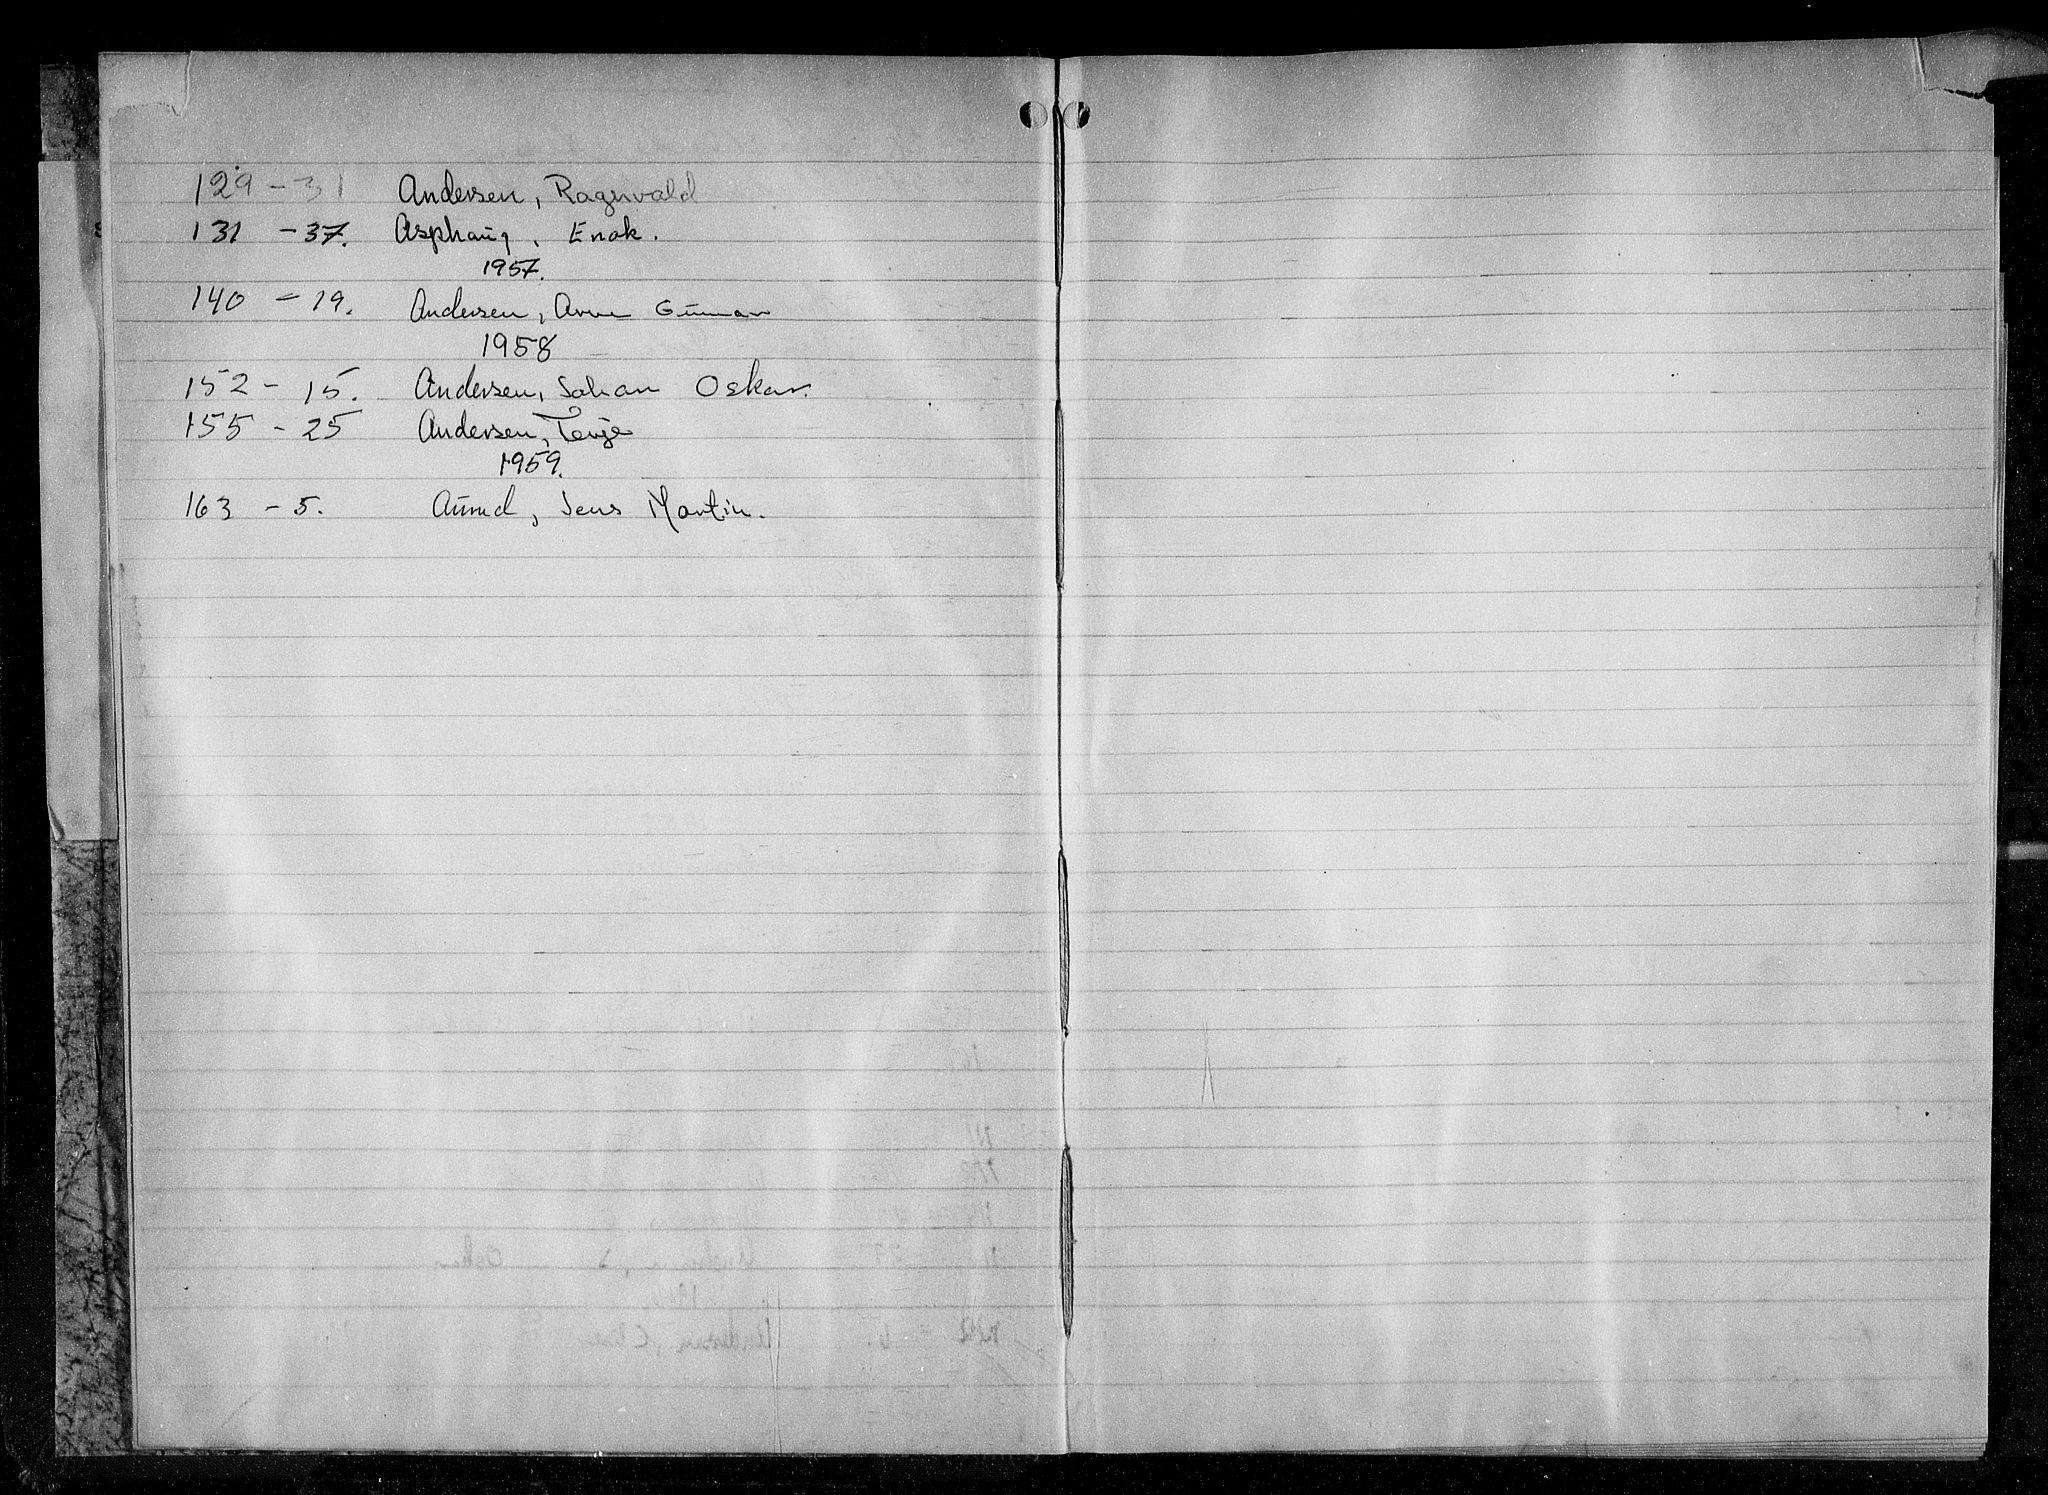 129 - 31 Andersen, Ragnvald
131 - 37. Asphaug, Enok.
1957.
140 - 19. Andersen, Arne Gunnar
1958
152 - 15. Andersen, Johan Oskar.
155 - 25 Andersen, Terje
1959.
163 - 5. Aunød, Jens Martin.